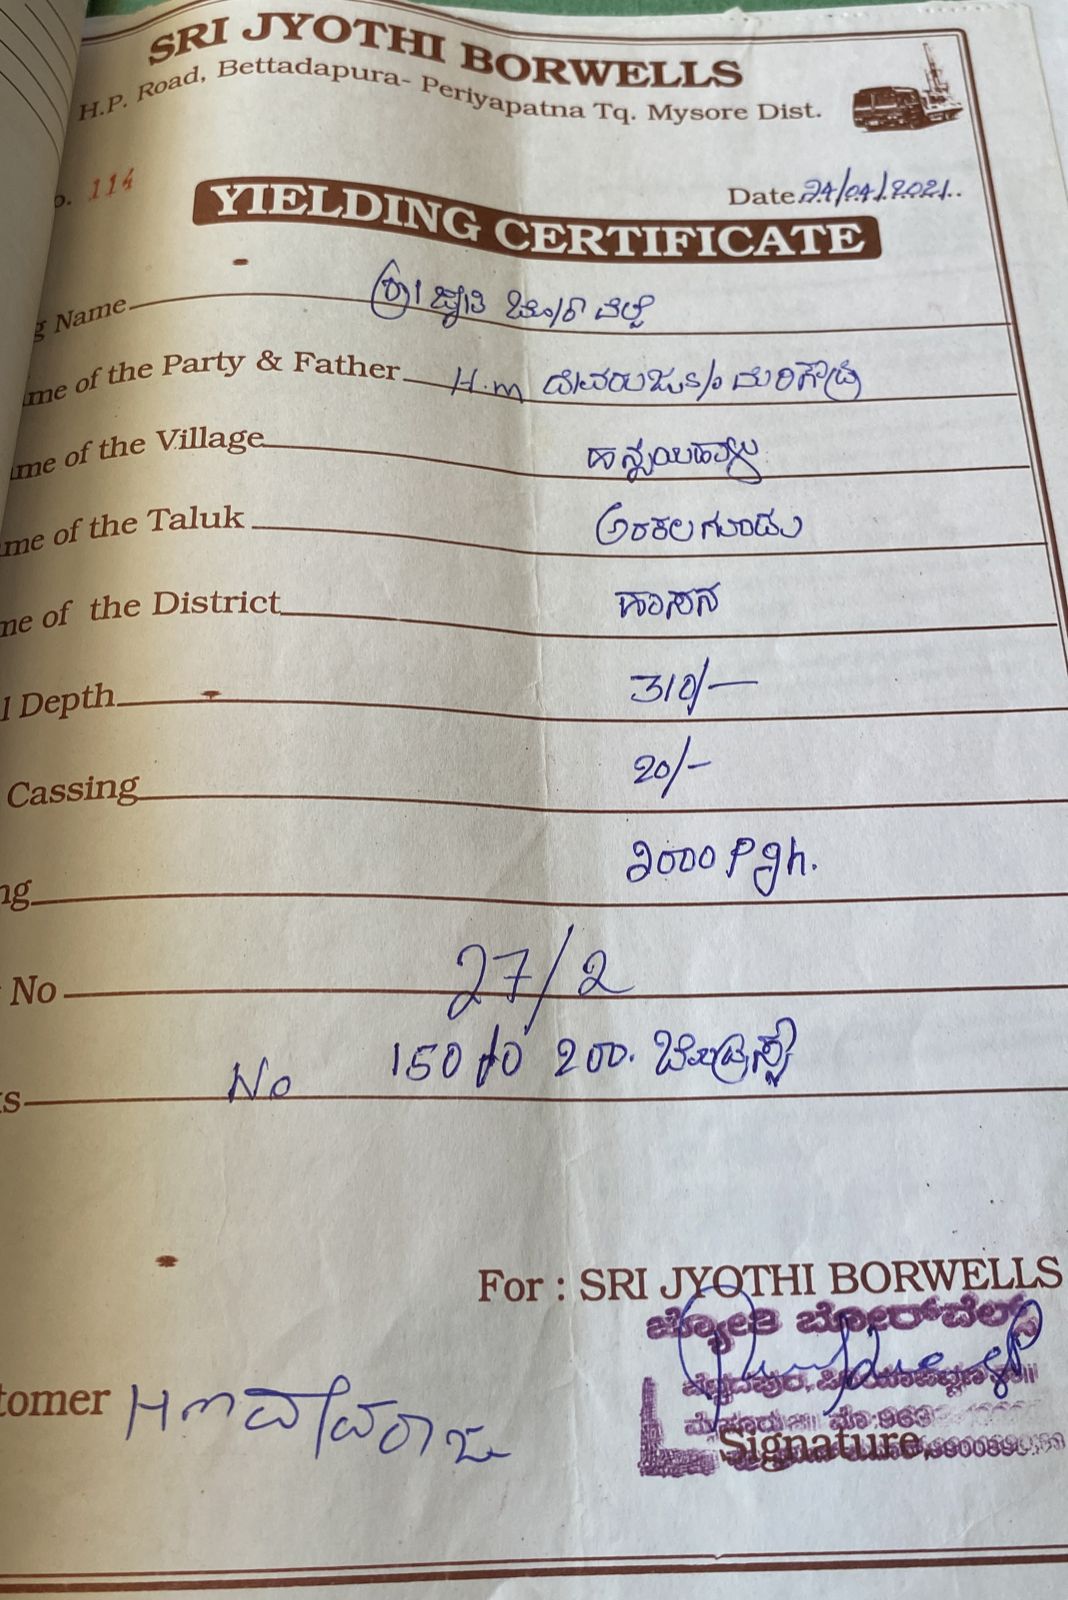 SRI JYOTHI BORWELLS
H.P. Road, Bettadapura- Periyapatna Tq. Mysore Dist.
o. 114
Date 24/04/2021..
YIELDING CERTIFICATE
g Name ಶ್ರೀ ಜ್ಯೋತಿ ಬೋರ್ ವೆಲ್ಸ್
me of the Party & Father H.m ದೇವರಾಜು s/o ಮರಿಗೌಡ
me of the Village
me of the Taluk ಅರಕಲಗೂಡು
me of the District ಹಾಸನ
l Depth 310/-
Cassing 20/-
ng 2000 Pgh.
No 27/2
ts No 150 to 200.
For : SRI JYOTHI BORWELLS
ಜ್ಯೋತಿ ಬೋರ್‌ವೆಲ್ಸ್
tomer H m ದೇವರಾಜು
Signature